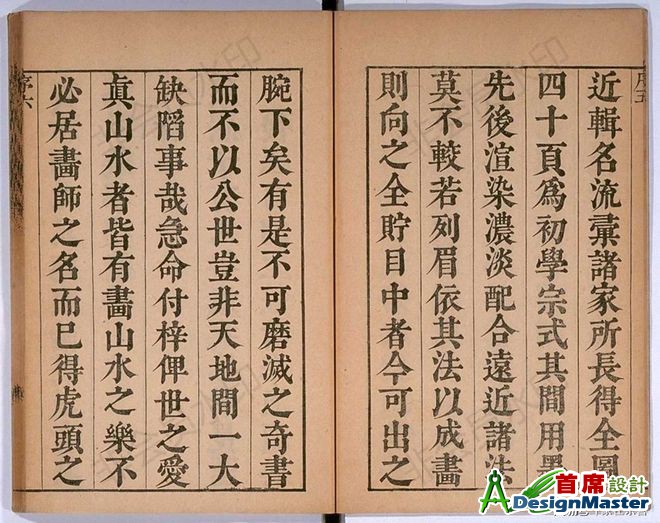 近輯名流彙諸家所長得全圖
四十頁爲初學宗式其間用墨
先後渲染濃淡配合遠近諸法
莫不較若列眉依其法以成畵
則向之全貯目中者今可出之
腕下矣有是不可磨滅之奇書
而不以公世豈非天地間一大
缺陷事哉急命付梓俾世之愛
眞山水者皆有畵山水之樂不
必居畵師之名而已得虎頭之
序六
首席設計
DesignMaster